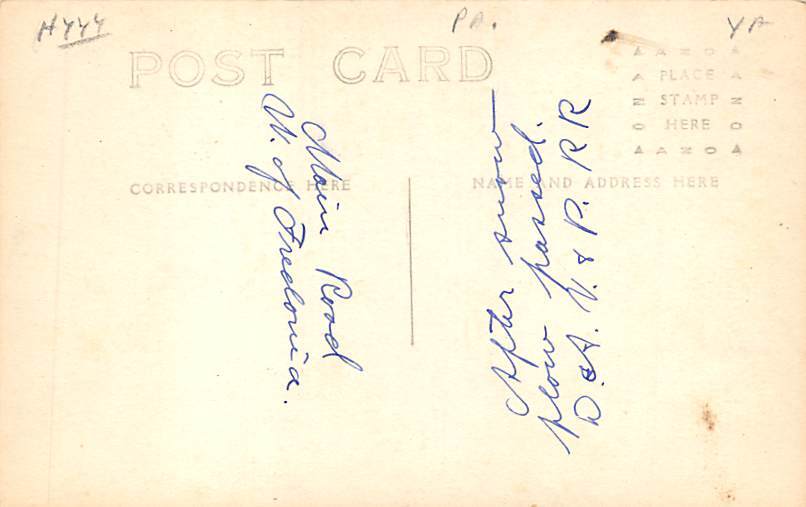 H444
PA.
YA
POST CARD
AZOA
A PLACE A
Z STAMP Z
O HERE O
AZOA
CORRESPONDENCE HERE
NAME AND ADDRESS HERE
Main Road
W. of Fredonia.
After snow
plow passed.
D. & A. V. & P. RR